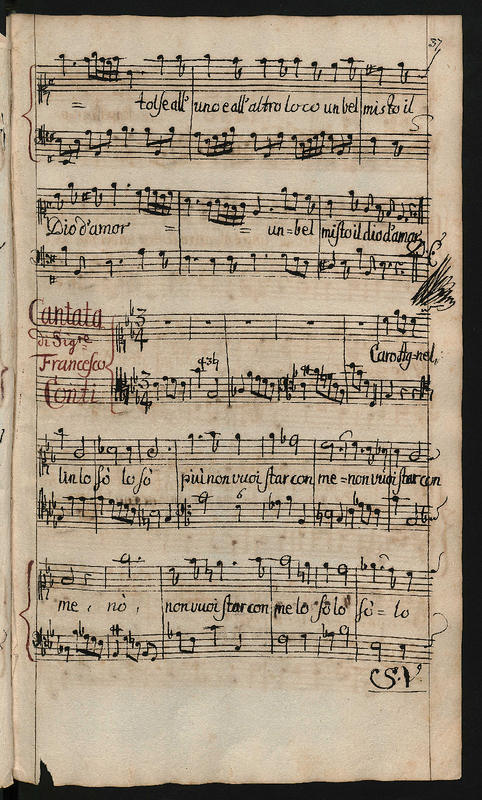 37
= tolse all' uno e all' altro loco un bel misto il
Dio d'amor = = un=bel misto il dio d'amor
D.C.
Cantata
di Sigre
Francesco
Conti
Caro Ag=nel,
lin lo sò lo sò più non vuoi star con me=non vuoi star con
me, nò, non vuoi star con me lo sò lo sò=lo
S.V.